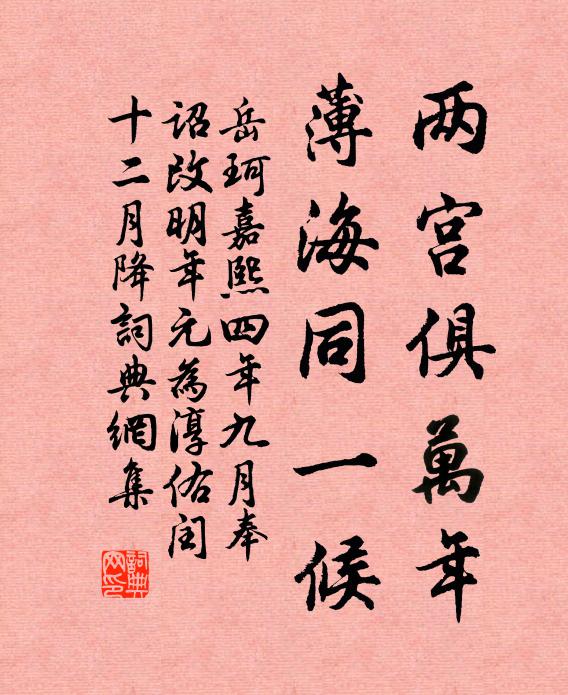 两宫俱萬年
薄海同一候
岳珂嘉熙四年九月奉
诏改明年元為淳佑闰
十二月降詞典網集
詞典
网印